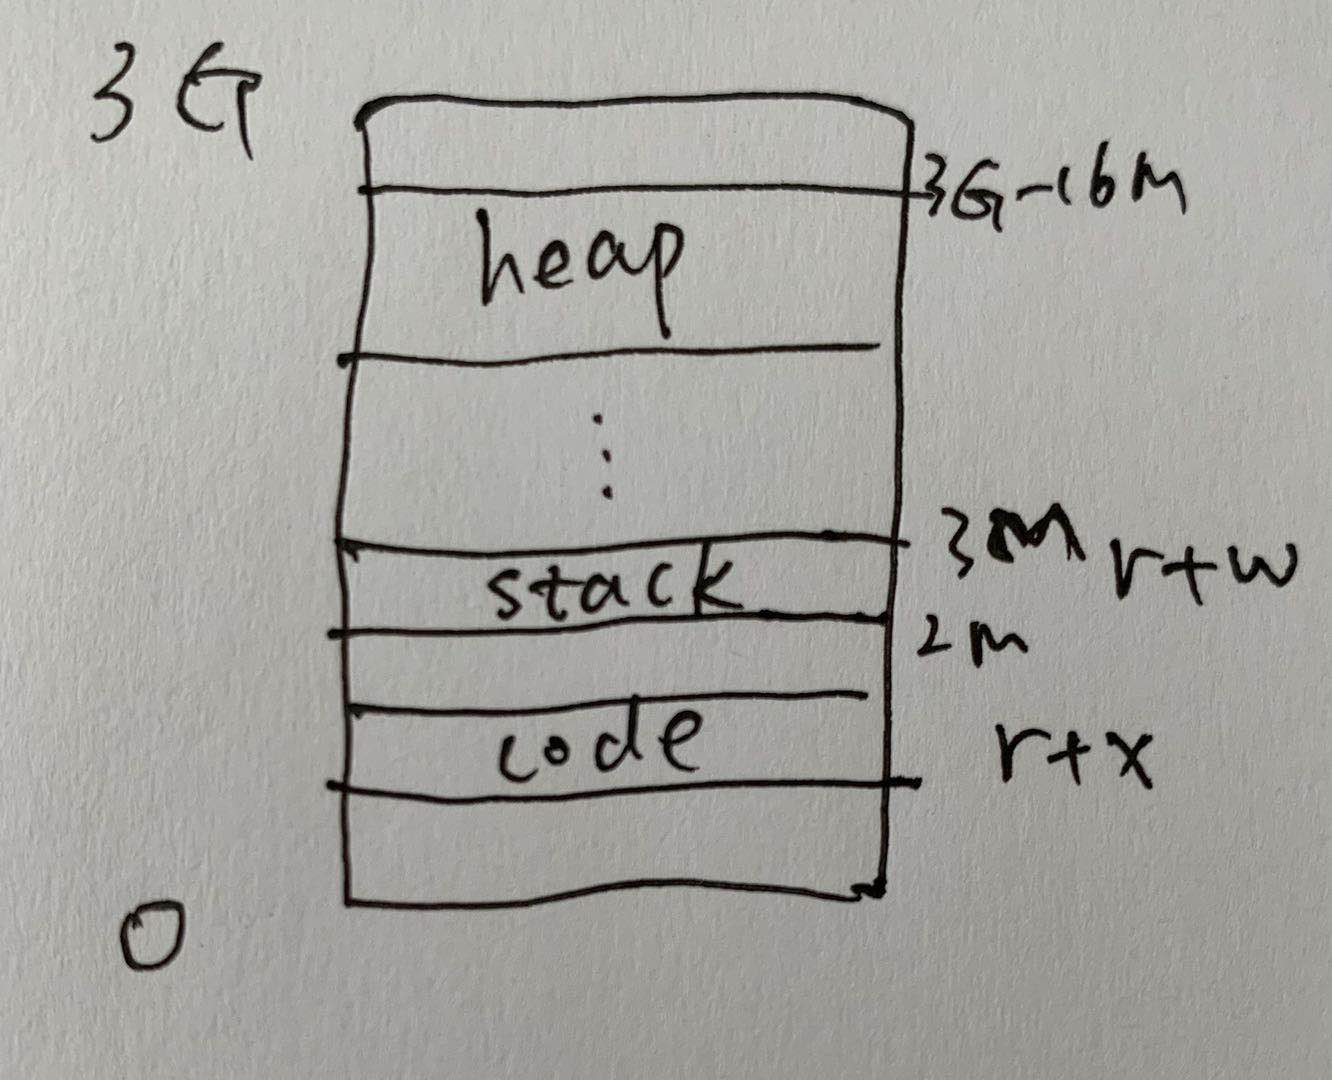 3G
3G-16m
heap
⋮
3M r+w
stack
2m
code
r+x
0